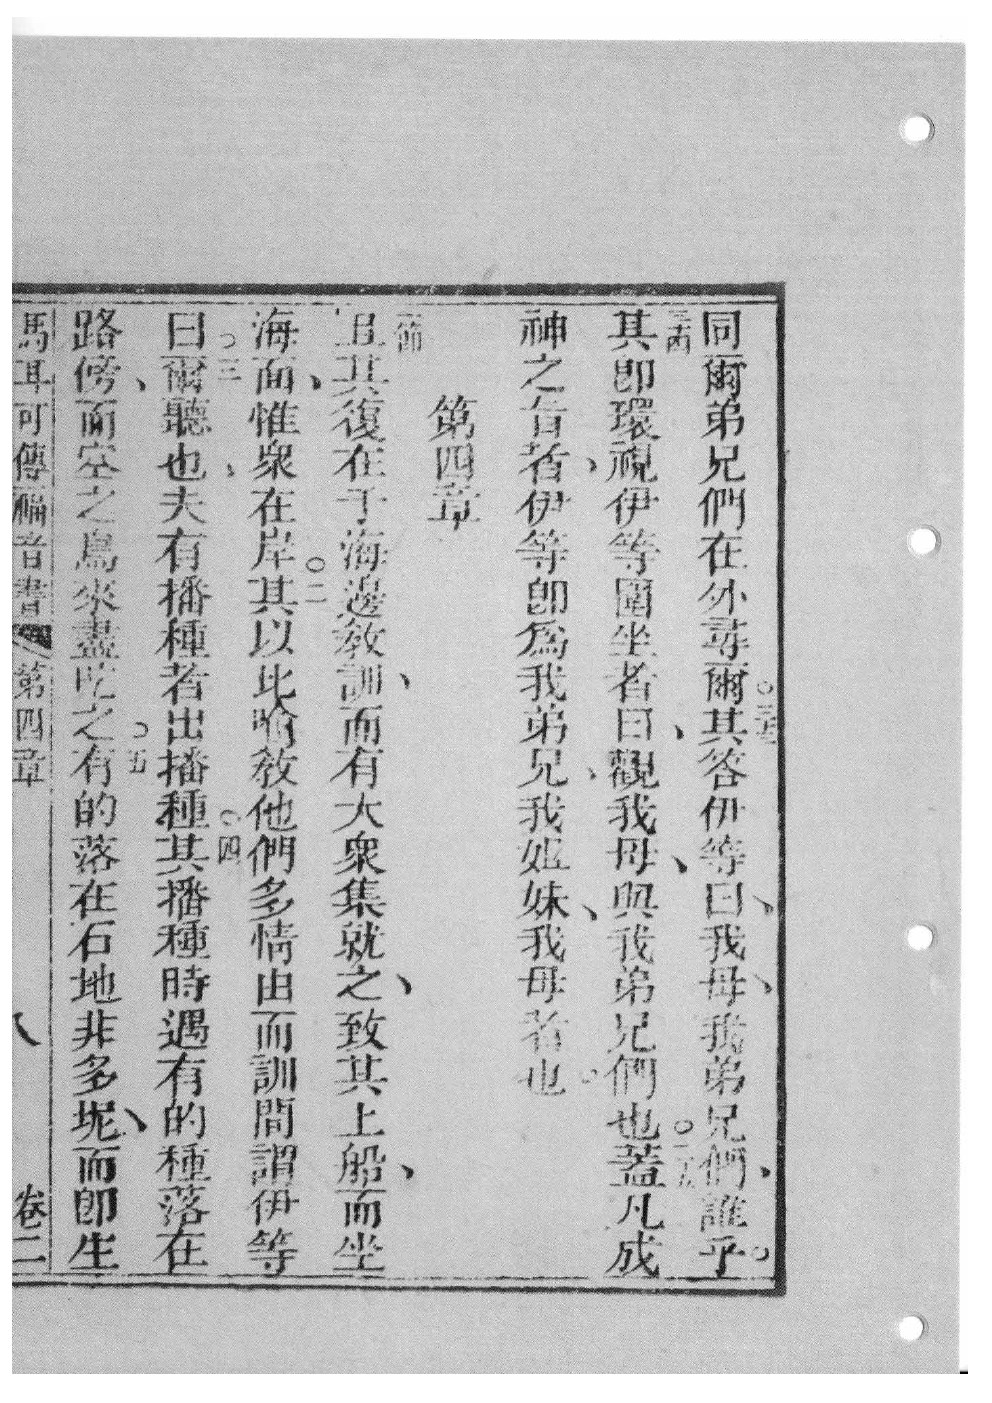 同爾弟兄們在外尋爾○三三其答伊等曰、我母、我弟兄們、誰乎。
三四其即環視伊等圍坐者、曰觀我母、與我弟兄們也○三五蓋凡成
神之旨者、伊等即為我弟兄、我姐妹、我母者也。
第四章
一節且其復在于海邊教訓、而有大衆集就之、致其上船、而坐
海面、惟衆在岸○二其以比喻教他們多情由而訓間謂伊等
曰○三爾聽也、夫有播種者出播種○四其播種時遇有的種落在
路傍、而空之鳥來盡吃之○五有的落在石地非多坭、而即生
馬耳可傳福音書 第四章 八 卷二